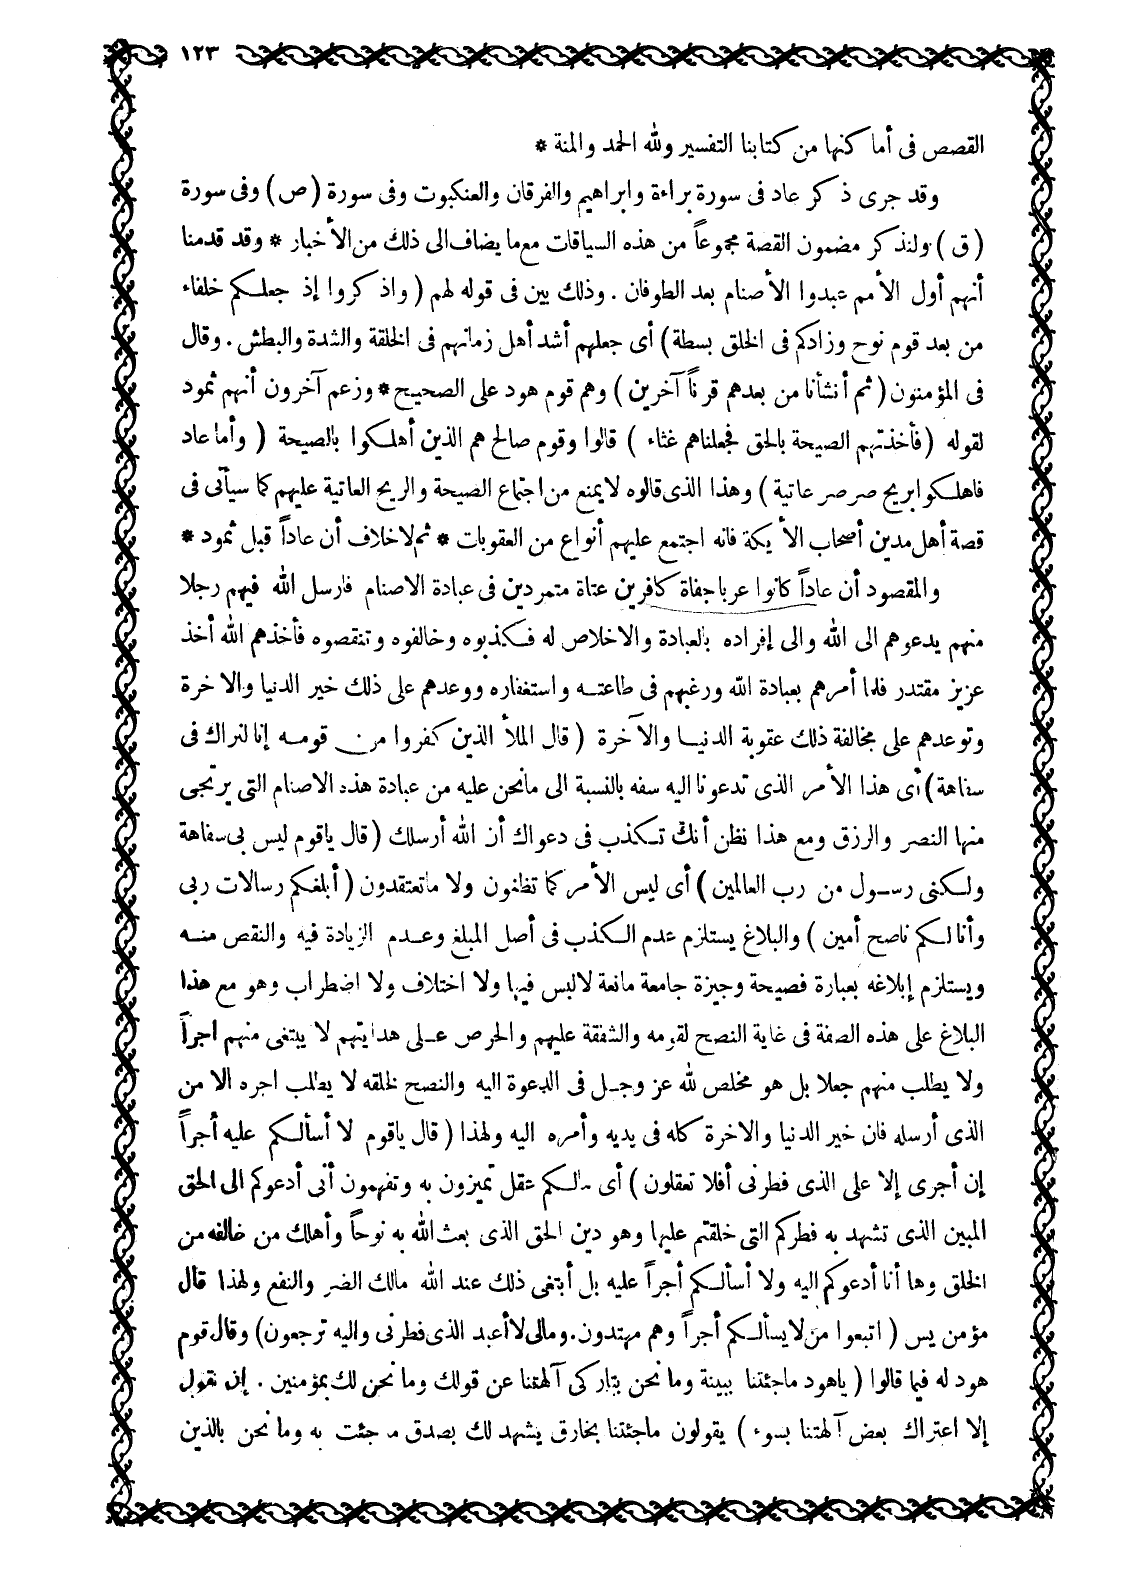 ١٢٣
القصص فى أما كنها من كتابنا التفسير ولله الحمد والمنة *
وقد جرى ذكر عاد فى سورة براءة وابراهيم والفرقان والعنكبوت وفى سورة (ص) وفى سورة
(ق) ولنذكر مضمون القصة مجموعاً من هذه السياقات مع ما يضاف الى ذلك من الأخبار * وقد قدمنا
أنهم أول الأمم عبدوا الأصنام بعد الطوفان . وذلك بين فى قوله لهم (واذكروا إذ جعلكم خلفاء
من بعد قوم نوح وزادكم فى الخلق بسطة) أى جعلهم أشد أهل زمانهم فى الخلقة والشدة والبطش . وقال
فى المؤمنون (ثم أنشأنا من بعدهم قرناً آخرين) وهم قوم هود على الصحيح * وزعم آخرون أنهم ثمود
لقوله (فأخذتهم الصيحة بالحق فجعلناهم غثاء) قالوا وقوم صالح هم الذين أهلكوا بالصيحة (وأما عاد
فاهلكوا بريح صرصر عاتية) وهذا الذى قالوه لا يمنع من اجتماع الصيحة والريح العاتية عليهم كما سيأتى فى
قصة أهل مدين أصحاب الأيكة فانه اجتمع عليهم أنواع من العقوبات * ثم لاخلاف أن عاداً قبل ثمود *
والمقصود أن عاداً كانوا عربا جفاة كافرين عتاة متمردين فى عبادة الاصنام فارسل الله فيهم رجلا
منهم يدعوهم الى الله والى إفراده بالعبادة والاخلاص له فكذبوه وخالفوه وتنقصوه فأخذهم الله أخذ
عزيز مقتدر فلما أمرهم بعبادة الله ورغبهم فى طاعته واستغفاره ووعدهم على ذلك خير الدنيا والاخرة
وتوعدهم على مخالفة ذلك عقوبة الدنيا والآخرة (قال الملأ الذين كفروا من قومه إنا لنراك فى
سفاهة) أى هذا الأمر الذى تدعونا اليه سفه بالنسبة الى مانحن عليه من عبادة هذه الاصنام التى يرتجى
منها النصر والرزق ومع هذا نظن أنك تكذب فى دعواك أن الله أرسلك (قال ياقوم ليس بى سفاهة
ولكنى رسول من رب العالمين) أى ليس الأمر كما تظنون ولا ماتعتقدون (أبلغكم رسالات ربى
وأنا لكم ناصح أمين) والبلاغ يستلزم عدم الكذب فى أصل المبلغ وعدم الزيادة فيه والنقص منه
ويستلزم إبلاغه بعبارة فصيحة وجيزة جامعة مانعة لالبس فيها ولا اختلاف ولا اضطراب وهو مع هذا
البلاغ على هذه الصفة فى غاية النصح لقومه والشفقة عليهم والحرص على هدايتهم لا يبتغى منهم اجراً
ولا يطلب منهم جعلا بل هو مخلص لله عز وجل فى الدعوة اليه والنصح لخلقه لا يطلب اجره الا من
الذى أرسله فان خير الدنيا والاخرة كله فى يديه وأمره اليه ولهذا (قال ياقوم لا أسألكم عليه أجراً
إن أجرى إلا على الذى فطرنى أفلا تعقلون) أى مالكم عقل تميزون به وتفهمون أنى أدعوكم الى الحق
المبين الذى تشهد به فطركم التى خلقتم عليها وهو دين الحق الذى بعث الله به نوحاً وأهلك من خالفه من
الخلق وها أنا أدعوكم اليه ولا أسألكم أجراً عليه بل أبتغى ذلك عند الله مالك الضر والنفع ولهذا قال
مؤمن يس (اتبعوا من لا يسألكم أجراً وهم مهتدون. ومالى لا أعبد الذى فطرنى واليه ترجعون) وقال قوم
هود له فيما قالوا (ياهود ماجئتنا ببينة وما نحن بتاركى آلهتنا عن قولك وما نحن لك بمؤمنين . إن نقول
إلا اعتراك بعض آلهتنا بسوء) يقولون ماجئتنا بخارق يشهد لك بصدق ما جئت به وما نحن بالذين